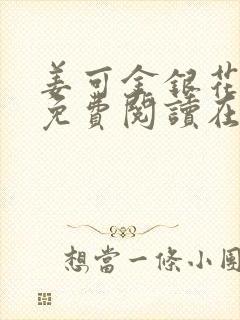 姜可金銀花
免費閱讀在
想當一條小團